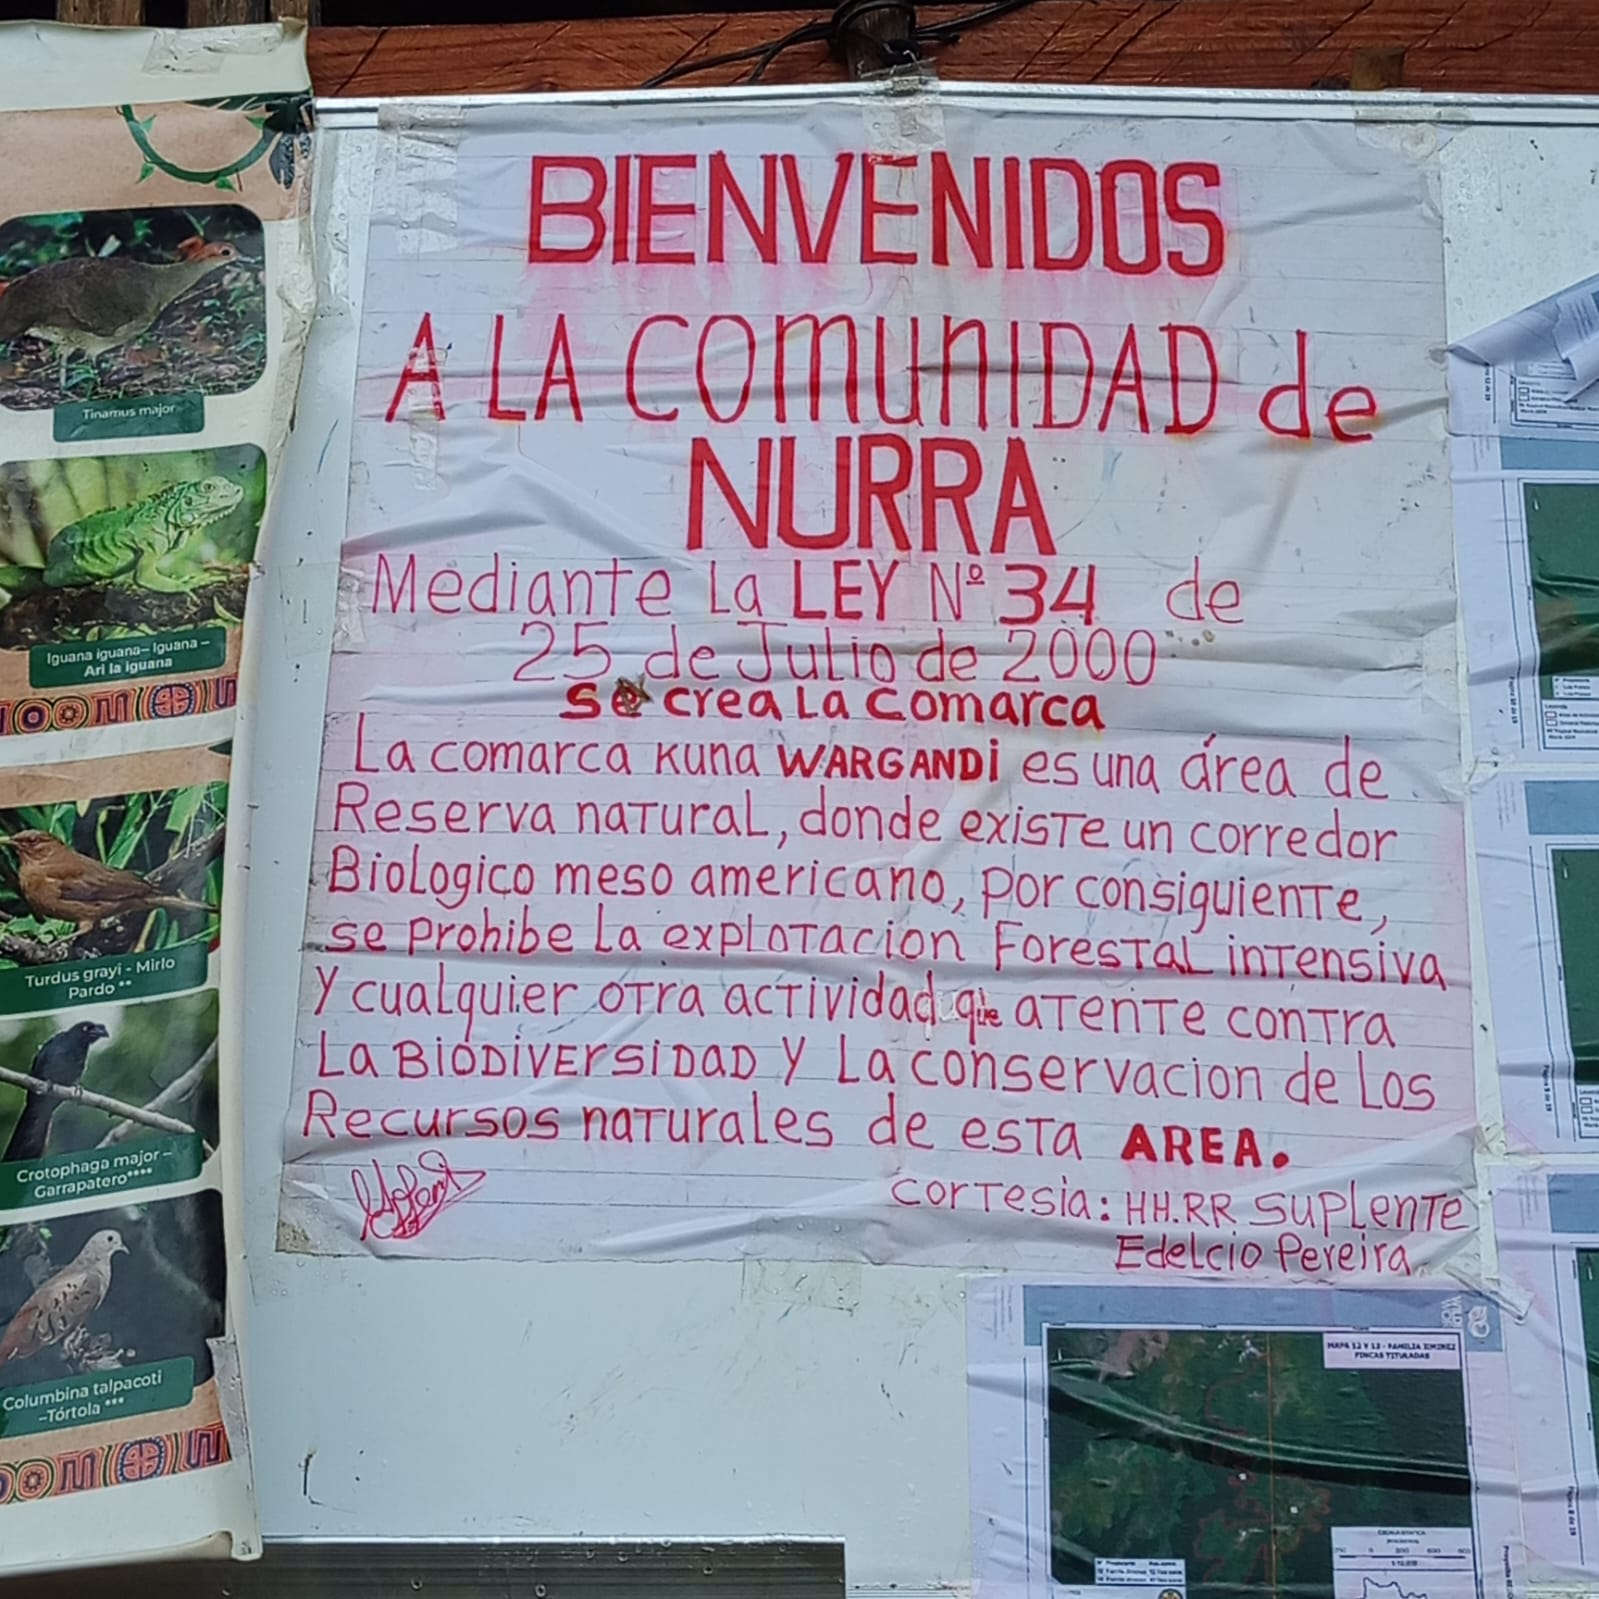 BIENVENIDOS
A LA COMUNIDAD de
NURRA
Mediante La LEY Nº 34 de
25 de Julio de 2000
Se crea La Comarca
La comarca Kuna WARGANDI es una área de
Reserva natural, donde existe un corredor
Biologico meso americano, por consiguiente,
se prohibe la explotacion Forestal intensiva
y cualquier otra actividad que atente contra
La BIODIVERSIDAD y La conservacion de Los
Recursos naturales de esta AREA.
Cortesia: HH.RR Suplente
Edelcio Pereira
Tinamus major
Iguana iguana– Iguana –
Ari la iguana
Turdus grayi - Mirlo
Pardo **
Crotophaga major –
Garrapatero****
Columbina talpacoti
–Tórtola ***
MAPA 12 Y 13 - FAMILIA XIMINEZ
FINCAS TITULADAS